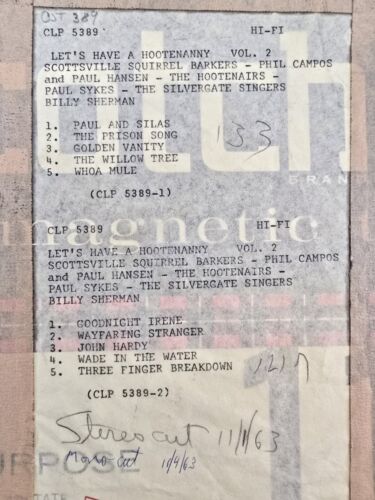 CST 389
CLP 5389 HI-FI
LET'S HAVE A HOOTENANNY VOL. 2
SCOTTSVILLE SQUIRREL BARKERS - PHIL CAMPOS
and PAUL HANSEN - THE HOOTENAIRS -
PAUL SYKES - THE SILVERGATE SINGERS
BILLY SHERMAN
1. PAUL AND SILAS
2. THE PRISON SONG
3. GOLDEN VANITY
4. THE WILLOW TREE
5. WHOA MULE
133
(CLP 5389-1)
CLP 5389 HI-FI
magnetic
LET'S HAVE A HOOTENANNY VOL. 2
SCOTTSVILLE SQUIRREL BARKERS - PHIL CAMPOS
and PAUL HANSEN - THE HOOTENAIRS -
PAUL SYKES - THE SILVERGATE SINGERS
BILLY SHERMAN
1. GOODNIGHT IRENE
2. WAYFARING STRANGER
3. JOHN HARDY
4. WADE IN THE WATER
5. THREE FINGER BREAKDOWN
(CLP 5389-2)
Stereo cut 11/1/63
Mono cut 11/4/63